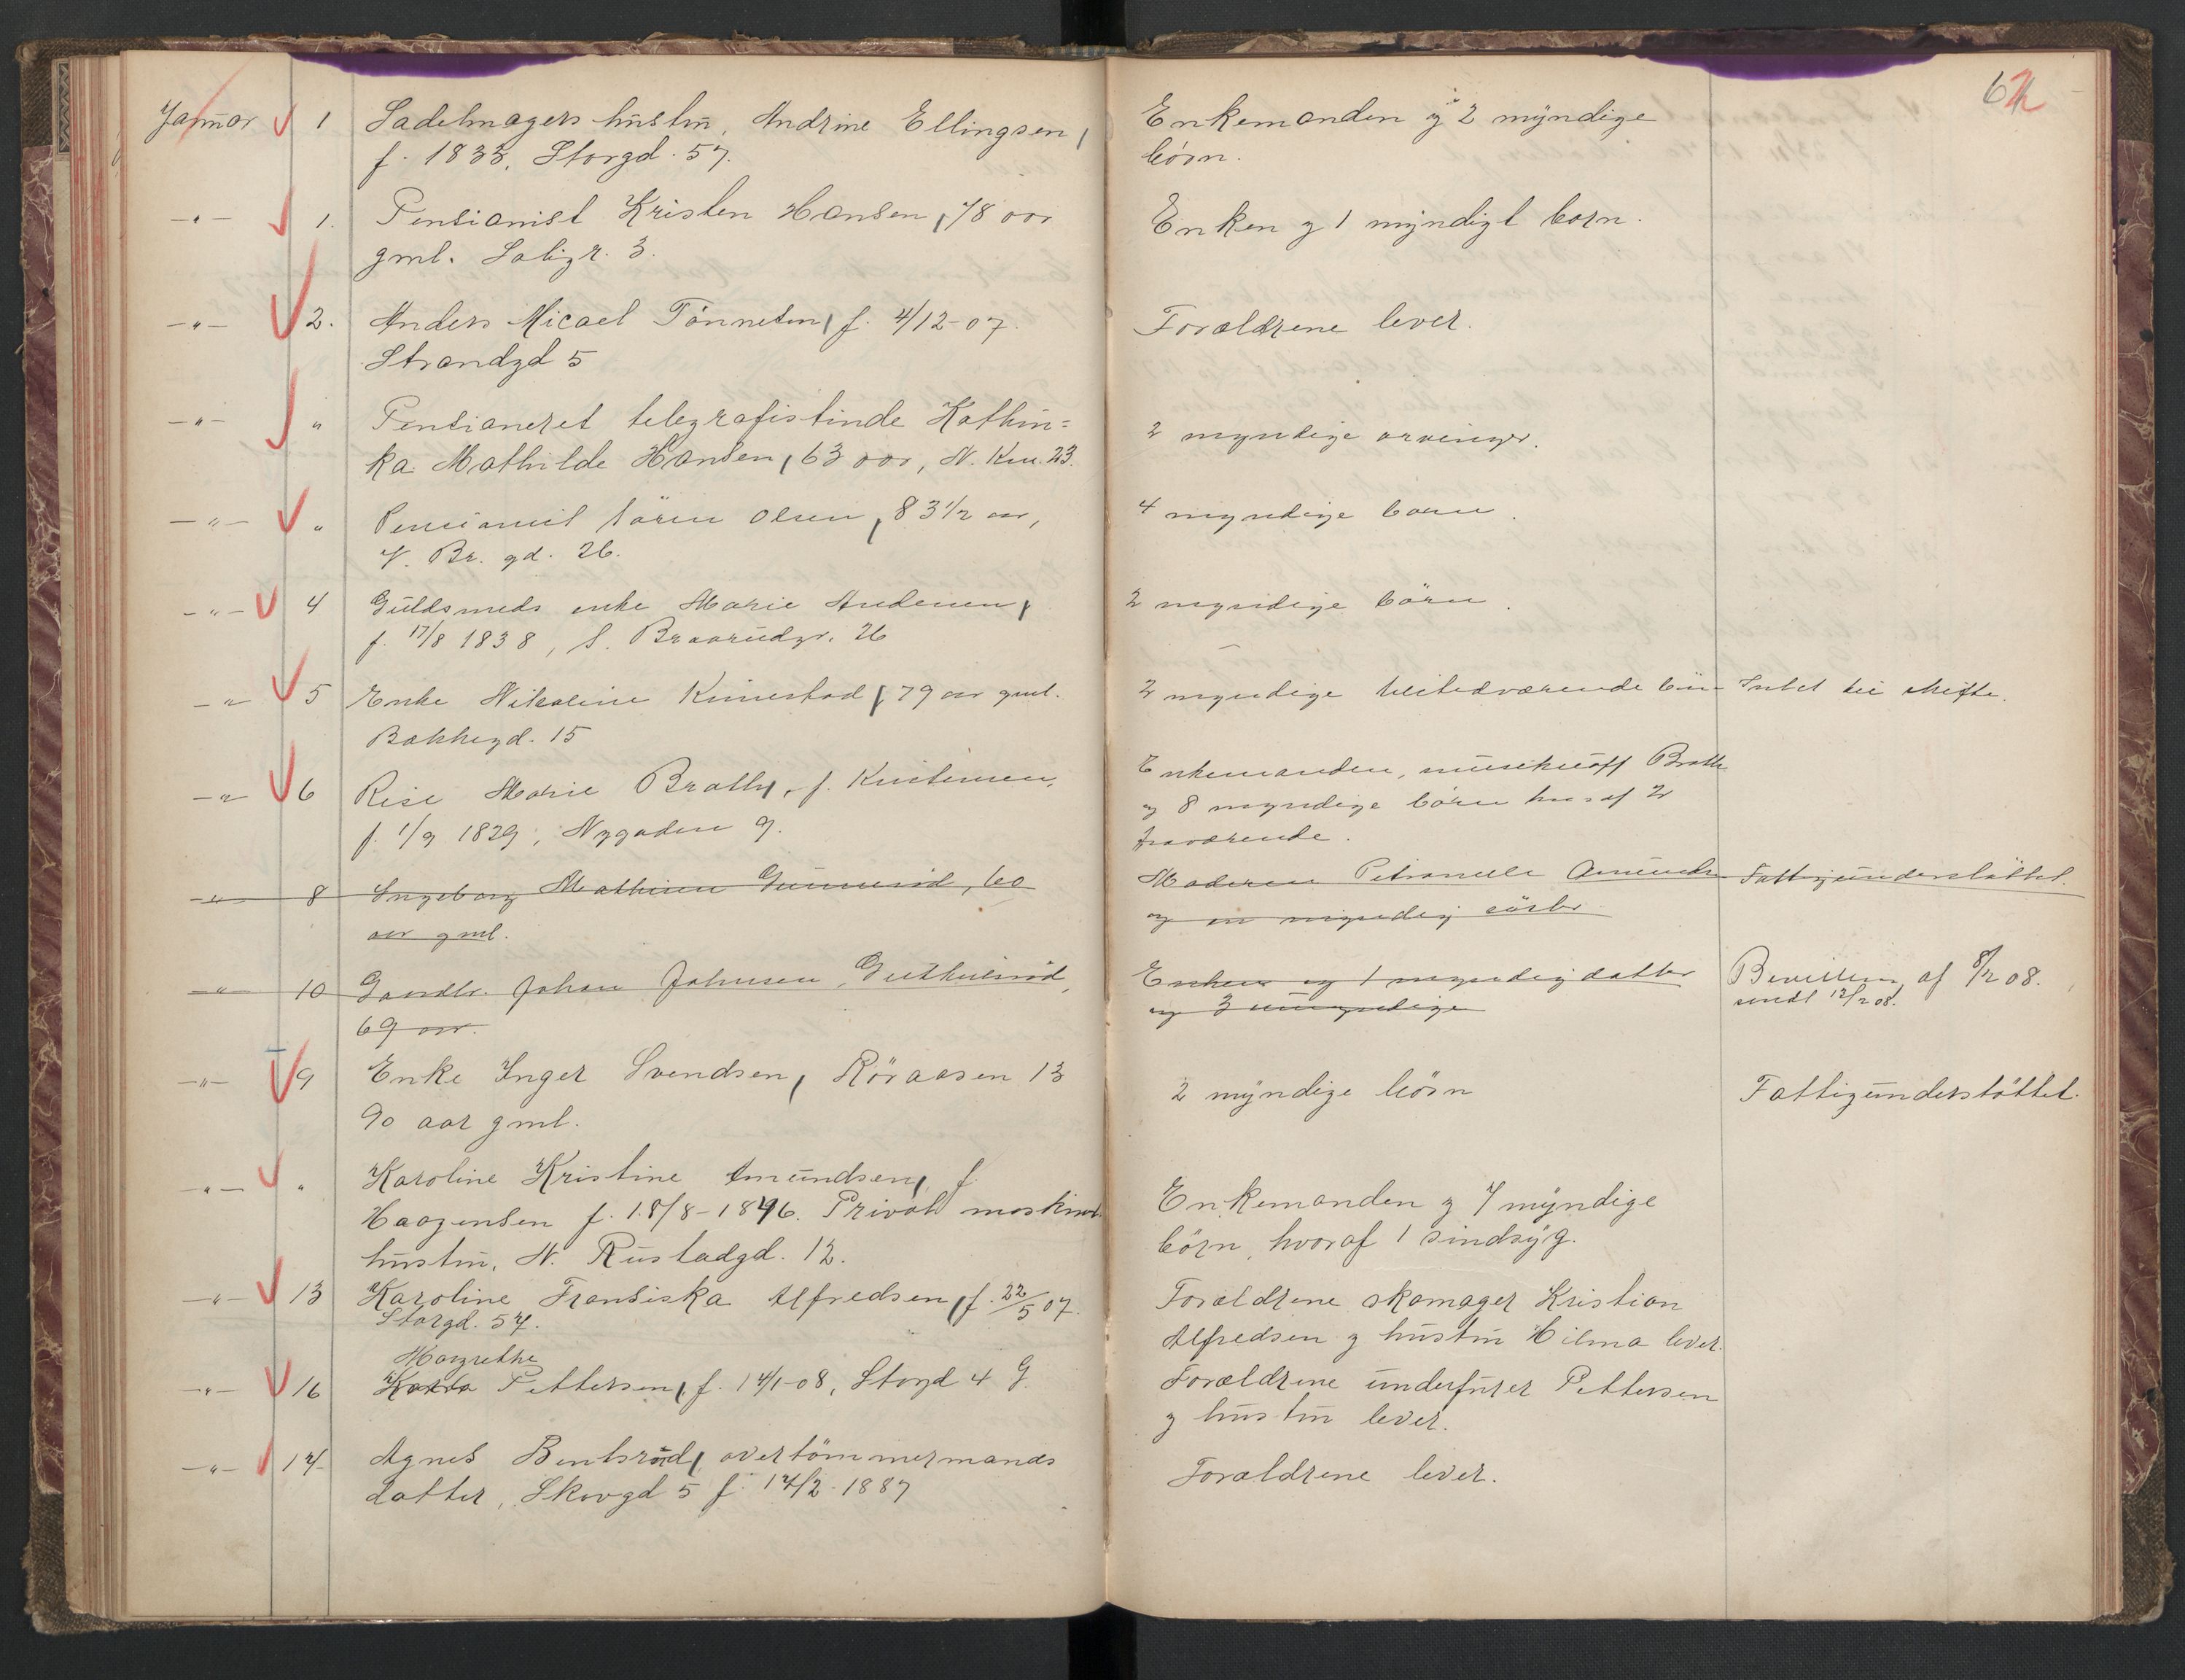 62
Januar 1 Sadelmagers hustru, Andrine Ellingsen,
f. 1833, Storgd. 57.
Enkemanden og 2 myndige
börn.
-"- 1. Pensionist Kristen Hansen, 78 aar
gml. Soligr. 3.
Enken og 1 myndigt barn.
-"- 2. Anders Micael Tönnesen, f. 4/12-07.
Strandgd 5
Forældrene lever.
-"- " Pensioneret telegrafistinde Kathin=
ka Mathilde Hansen, 63 aar, N. 23.
2 myndige arvinger.
-"- " Pensionist Sören Olsen, 83 1/2 aar,
V. Br. gd. 26.
4 myndige barn.
-"- 4 Guldsmeds enke Marie Andersen,
f. 17/8 1838, S. Braarudgr. 26
2 myndige börn.
-"- 5 Enke Nikoline Kimestad, 79 aar gml.
Bakkegd. 15
2 myndige tilstedværende börn Intet til skifte.
-"- 6 Rise Marie Brath, f. Kristensen,
f. 1/9 1829, Nygaden 9.
Enkemanden, Brath
og 8 myndige börn hvoraf 2
fraværende.
-"- 8 Ingeborg Mathisen Gunnerød, 60
aar gml.
Moderen Petronelle Amunds
og en myndig söster
Fattigunderstöttet.
-"- 10 Gaardbr. Johan Johnsen,
69 aar.
Enken og 1 myndig datter
og 3 umyndige
Bevilling af 8/2 08.
sendt 12/2 08.
-"- 9 Enke Inger Svendsen, Röraasen 13
90 aar gml.
2 myndige börn Fattigunderstöttet.
-"- " Karoline Kristine Amundsen, f.
Haagensen f. 18/8-1846. Privat maskinm.
hustru, N. Rustadgd. 12.
Enkemanden og 7 myndige
börn, hvoraf 1 sindsyg.
-"- 13 Karoline Fransiska Alfredsen, f. 22/5 07.
Storgd. 57.
Forældrene skomager Kristian
Alfredsen og hustru Hilma lever.
-"- 16 Margrethe
Karla Pettersen, f. 14/1-08, Storgd 4 G.
Forældrene underfyrer Pettersen
og hustru lever.
-"- 17 Agnes Bentsrød, overtömmermands
datter, Skovgd 5 f. 17/2-1887
Forældrene lever.